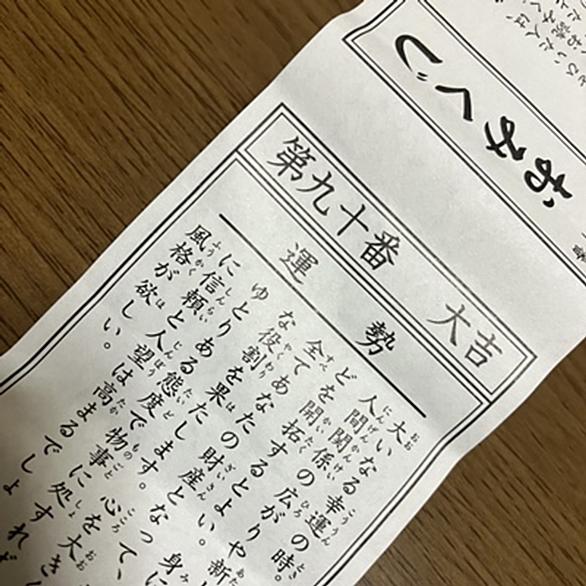 おみくじ
第九十番 大吉
運勢
大いなる幸運の時。
人間関係の広がりや新
どを開拓するとよい。
全てあなたの財産となって、身に
な役割を果たします。心を大き
ゆとりある態度で物事に処すれば
に信頼と人望は高まるでしょ
風格が欲しい。